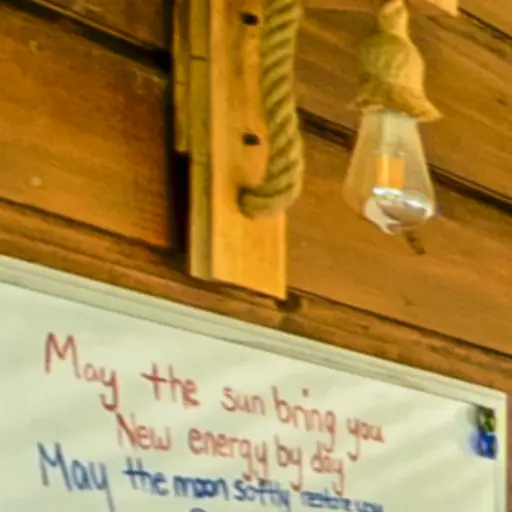 May the sun bring you
New energy by day
May the moon softly restore you